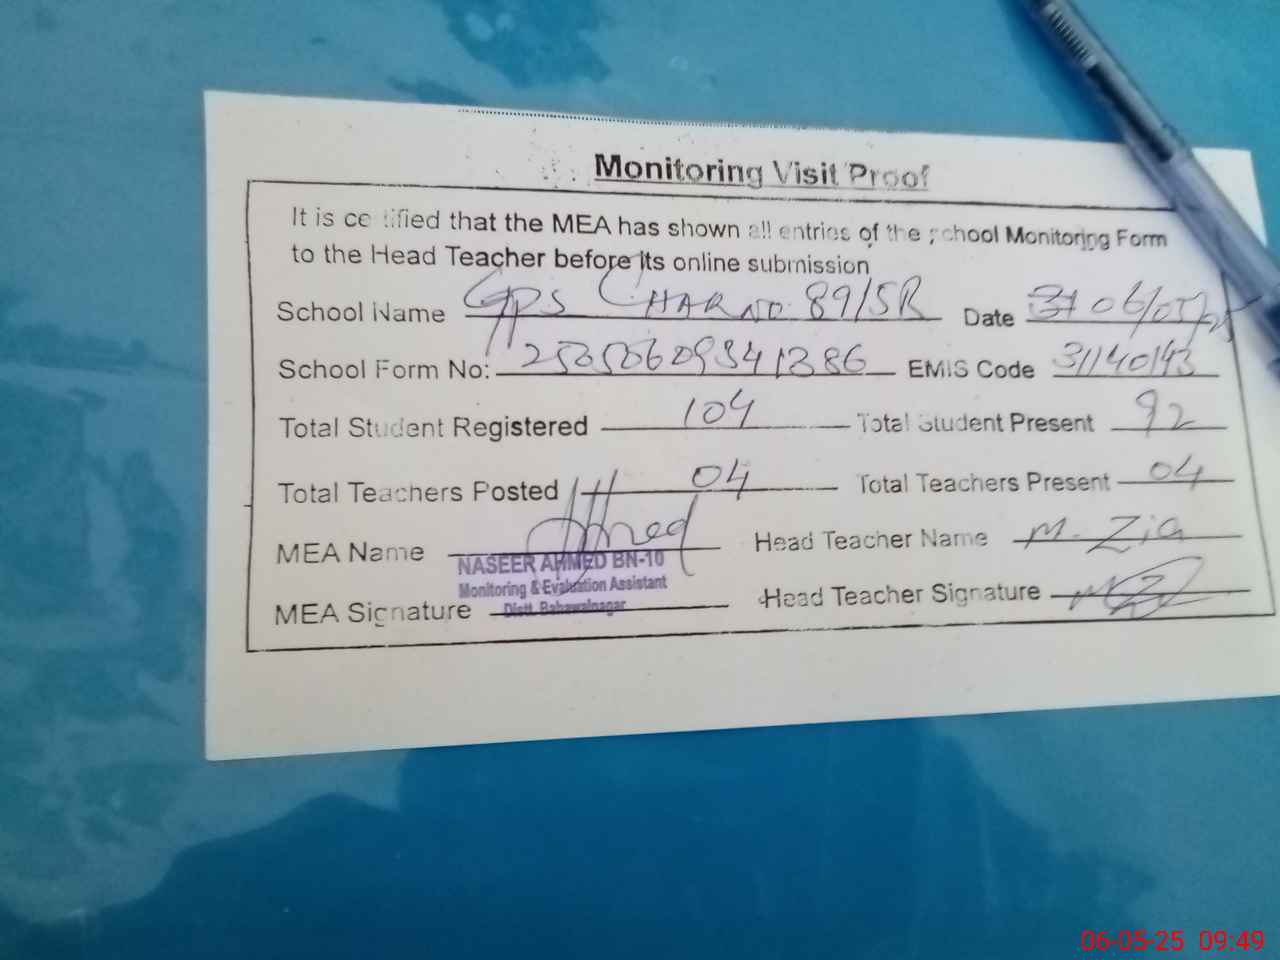 Monitoring Visit Proof
It is certified that the MEA has shown all entries of the school Monitoring Form
to the Head Teacher before its online submission
School Name GPS CHAK NO. 89/5R Date 06/05/25
School Form No: 25050609341386 EMIS Code 31140143
Total Student Registered 104 Total Student Present 92
Total Teachers Posted 04 Total Teachers Present 04
MEA Name Ahmed Head Teacher Name M. Zia
NASEER AHMED BN-10
Monitoring & Evaluation Assistant
Distt. Bahawalnagar
MEA Signature Head Teacher Signature
06-05-25 09:49